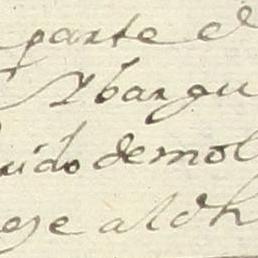 parte el
Ybargu
uido demol
ese aldh